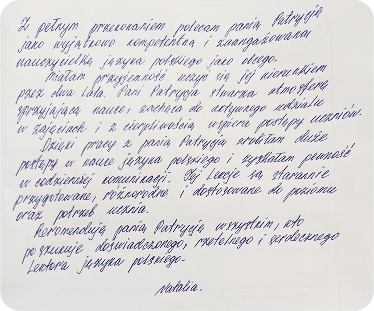 Z pełnym przekonaniem polecam panią Patrycję
jako wyjątkowo kompetentną i zaangażowaną
nauczycielkę języka polskiego jako obcego.
Miałam przyjemność uczyć się jej kierunkiem
przez dwa lata. Pani Patrycja stwarza atmosferę
sprzyjającą nauce, zachęca do aktywnego udziału
w zajęciach i z cierpliwością wspiera postępy uczniów.
Dzięki pracy z panią Patrycją zrobiłam duże
postępy w nauce języka polskiego i zyskałam pewność
w codziennej komunikacji. Jej lekcje są starannie
przygotowane, różnorodne i dostosowane do poziomu
oraz potrzeb ucznia.
Rekomenduję panią Patrycję wszystkim, kto
poszukuje doświadczonego, rzetelnego i serdecznego
Lektora języka polskiego.
Natalia.